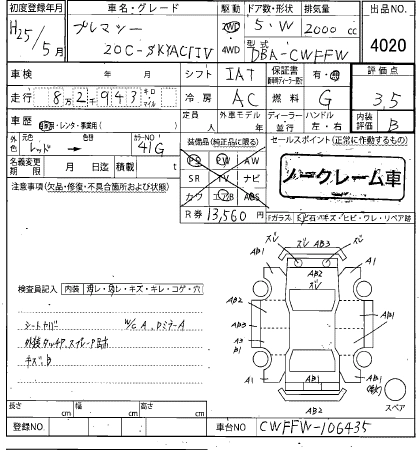 初度登録年月 車名・グレード 駆動 ドア数・形状 排気量 出品NO.
H25/5月 プレマシー 2WD 5・W 2000cc 4020
20C-SKYACTIV 4WD 型式 DBA-CWFFW
車検 年 月 シフト IAT 保証書 有・無 評価点
走行 82943 キロ マイル 冷房 AC 燃料 G 3.5
車歴 自家用・レンタ・事業用( ) 定員 人 外車モデル 年 ディーラー 並行 ハンドル 左・右 内装評価 B
外色 レッド 色替 カラーNO 41G
装備品(純正品に限る) セールスポイント(正常に作動するもの)
名義変更期限 月 日迄 積載 t
PS PW AW
SR TV ナビ
カワ エアB ABS
ノークレーム車
注意事項(欠品・修復・不具合箇所および状態)
R券 13,560円
Fガラス 飛石・キズ・ヒビ・ワレ・リペア跡
ズレ AB3 ズレ
AB1 AB2 A1
ズレ
AB2 AB1
AB3 AB2
A3
B1
A1 AB1 AB1
AB2
スペア
検査員記入 内装 汚レ・スレ・キズ・キレ・コゲ・穴
シートカバー W/C A、Dミラー A
外装タッチアップ、スプレー
キズ、B
長さ cm 幅 cm 高さ cm
登録NO. 車台NO. CWFFW-106435